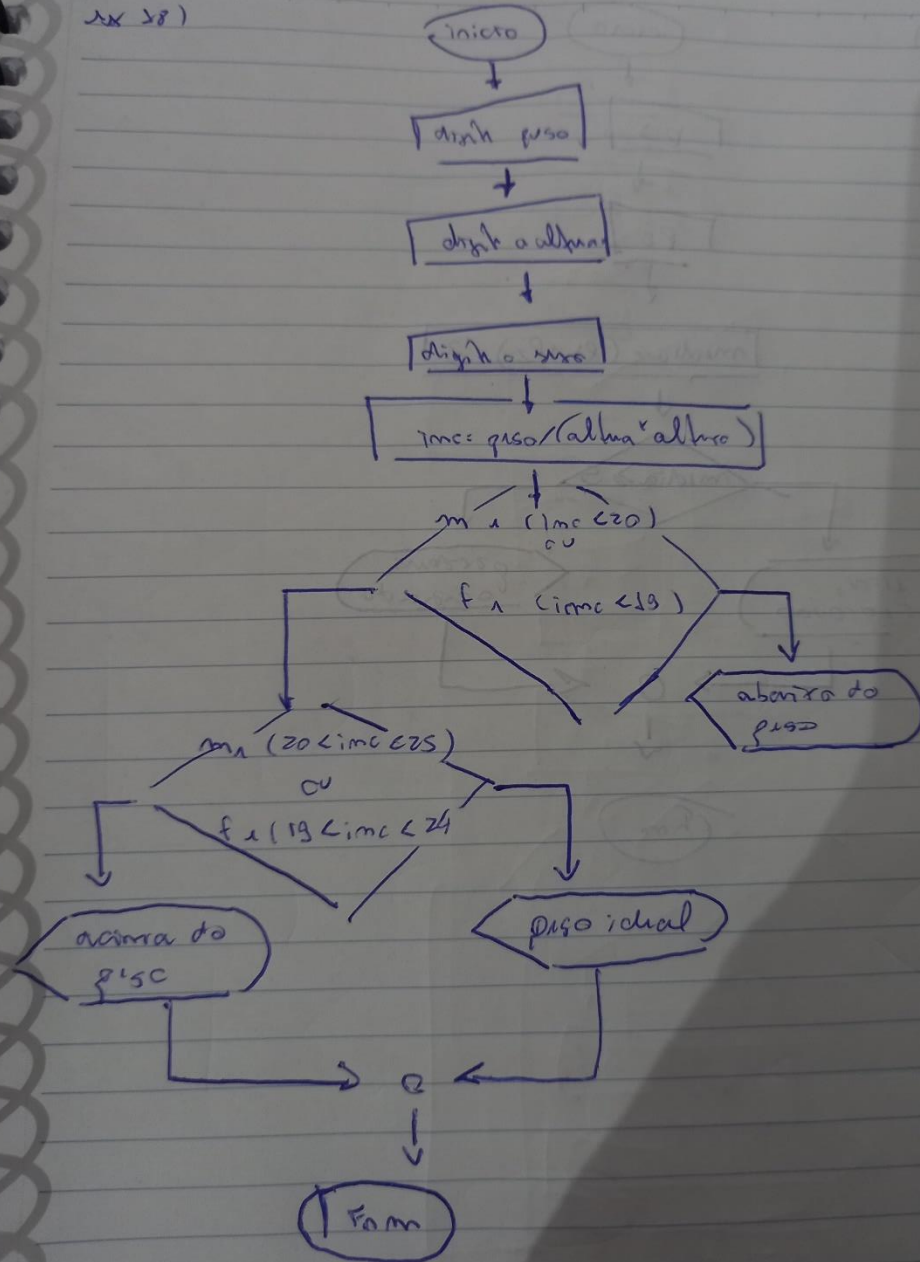 ex 18)
inicio
digite peso
digite a altura
digite o sexo
imc= peso/(altura*altura)
m e (imc <20)
ou
f e (imc <19)
abaixo do
peso
m e (20 <imc <25)
ou
f e (19 <imc < 24
acima do
peso
peso ideal
Fim